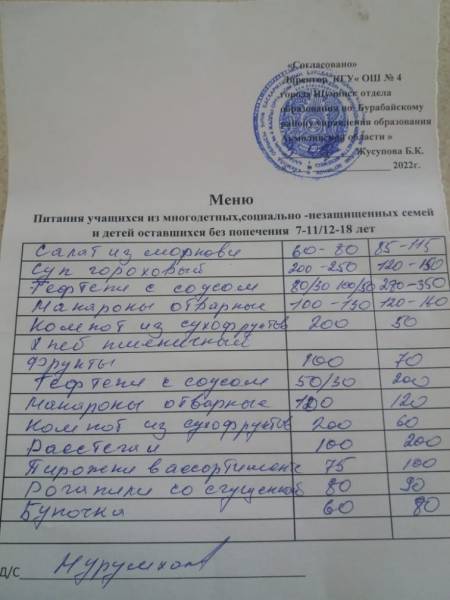 «Согласовано»
Директор КГУ« ОШ № 4
города Щучинск отдела
образования по Бурабайскому
району управления образования
Акмолинской области »
Жусупова Б.К.
2022г.
Меню
Питания учащихся из многодетных,социально -незащищенных семей
и детей оставшихся без попечения 7-11/12-18 лет
Салат из моркови 60-80 85-115
Суп гороховый 200-250 120-150
Тефтели с соусом 80/30 100/30 270-350
Макароны отварные 100-130 120-140
Компот из сухофруктов 200 50
Хлеб пшеничный
Фрукты 100 70
Тефтели с соусом 50/30 200
Макароны отварные 100 120
Компот из сухофруктов 200 60
Расстегаи 100 200
Пирожки в ассортименте 75 100
Рогалики со сгущенкой 80 90
Булочка 60 80
Д/С